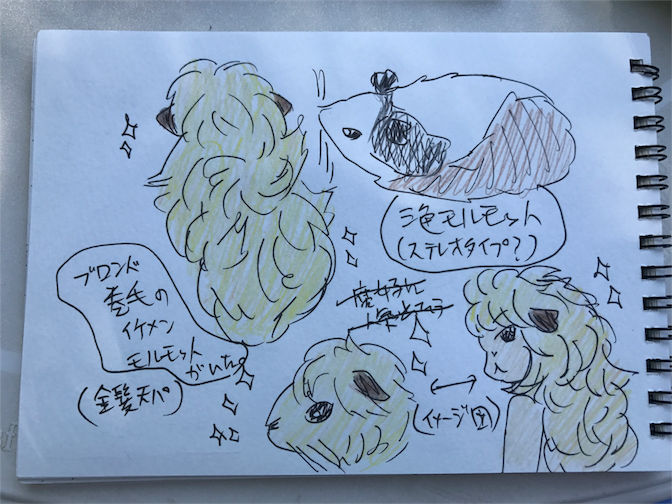 三色モルモット
(ステレオタイプ?)
ブロンド
巻毛の
イケメン
モルモット
がいた。
(金髪天パ)
(イメージ図)